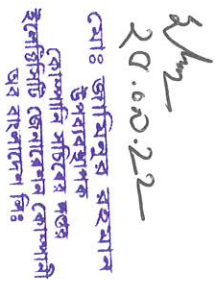 মোঃ রহমান
উপব্যবস্থাপক
কোম্পানি সচিবের দপ্তর
ইলেক্ট্রিসিটি জেনারেশন কোম্পানী
অব বাংলাদেশ লিঃ